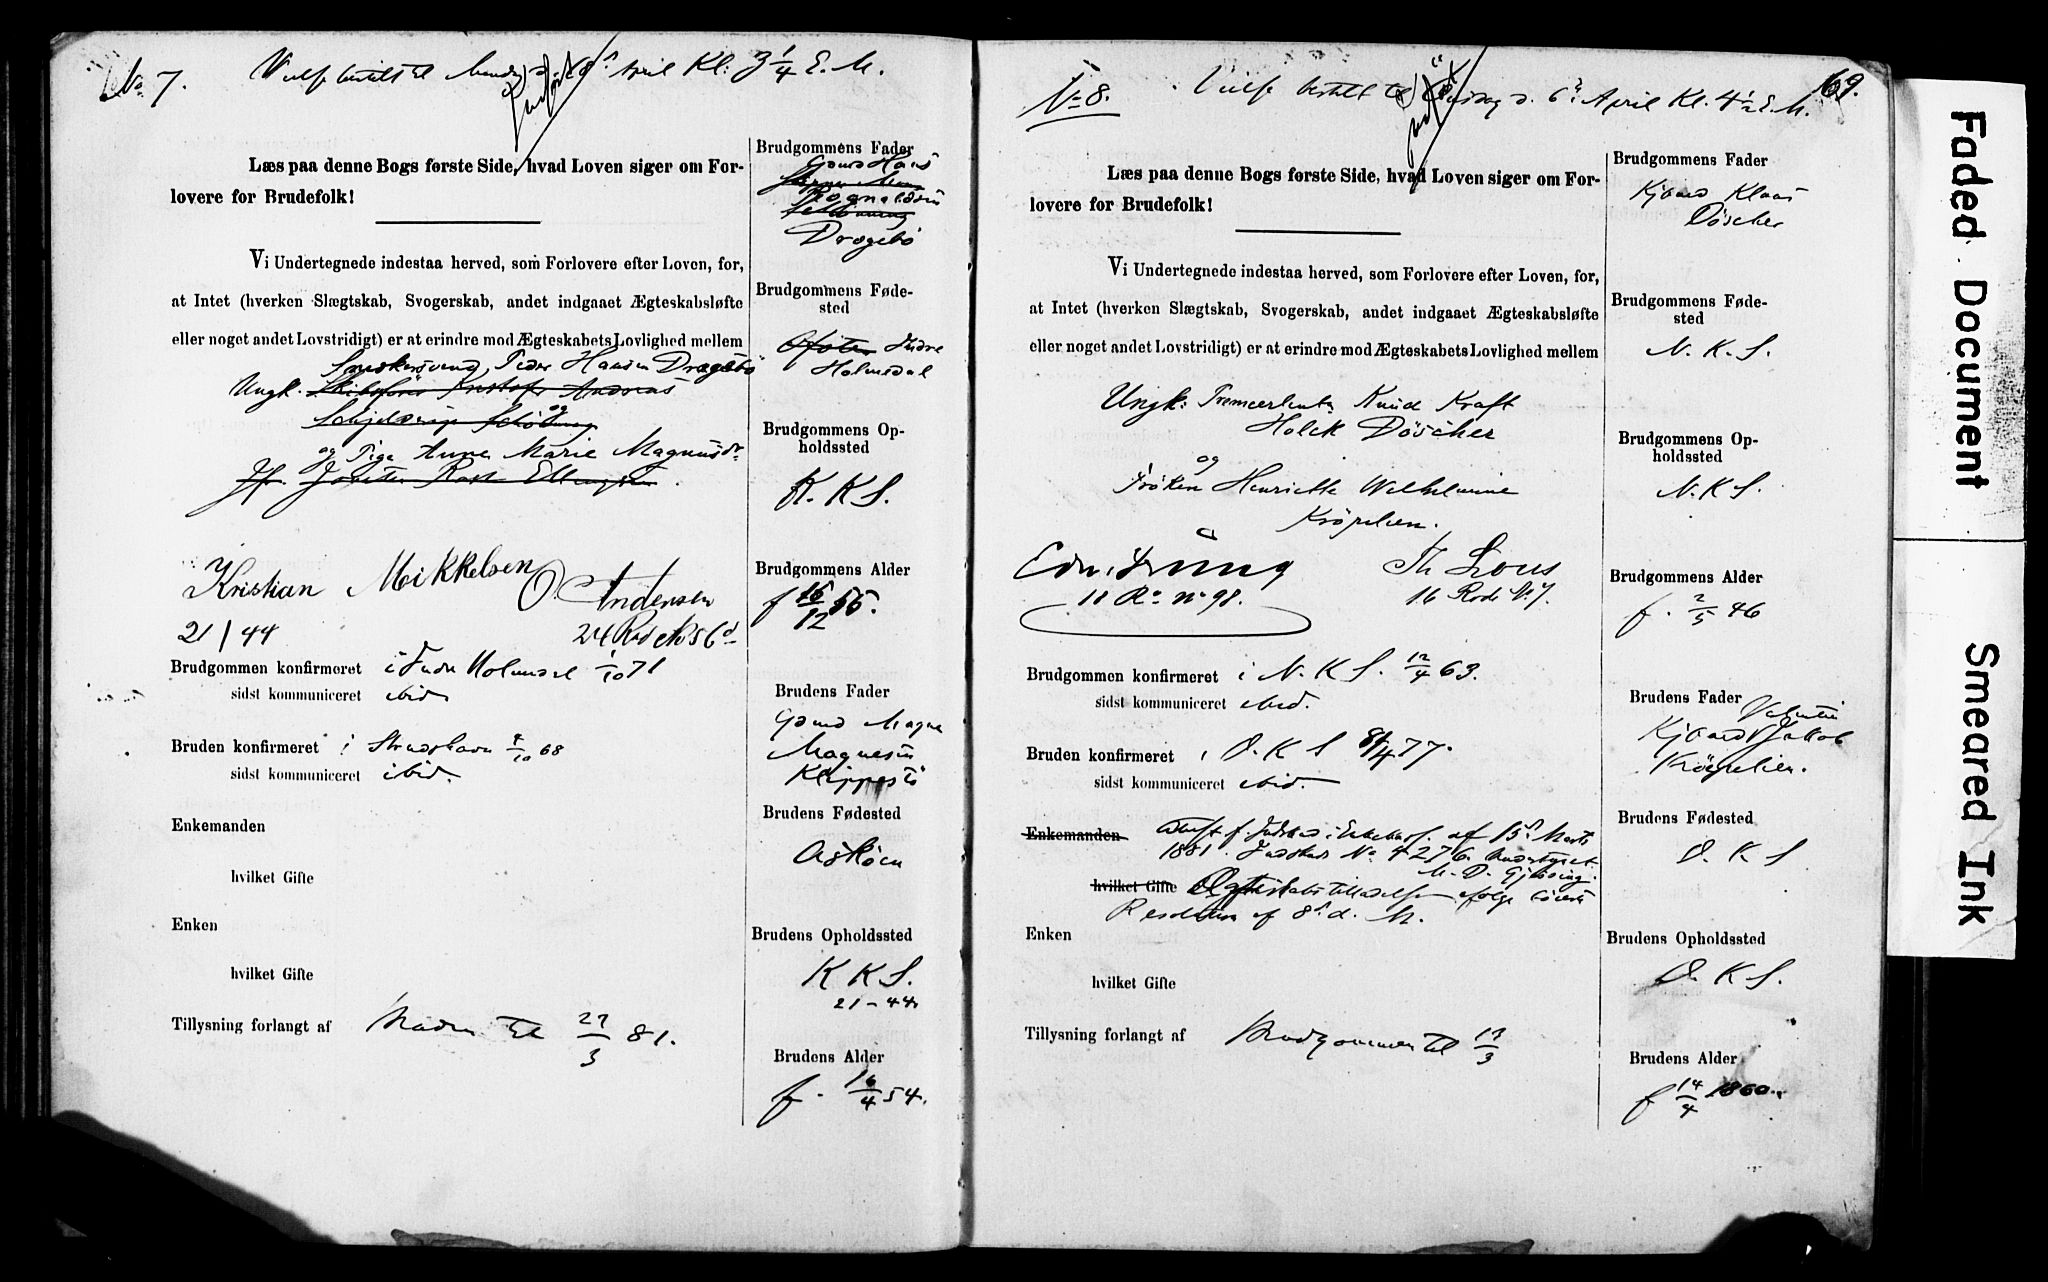 No 7. Vielse bestilt til d. April Kl: 3 1/4 E. M.
Læs paa denne Bogs første Side, hvad Loven siger om For-
lovere for Brudefolk!
Vi Undertegnede indestaa herved, som Forlovere efter Loven, for,
at Intet (hverken Slægtskab, Svogerskab, andet indgaaet Ægteskabsløfte
eller noget andet Lovstridigt) er at erindre mod Ægteskabets Lovlighed mellem
Snedkersvend Peder Hansen Dragebø
Ungk. Skibsfører Kristofer Andreas
og
og Pige Anne Marie Magnusdr
Jfr.
Kristian Mikkelsen O. Andersen
21/44 24 Rode No 56 d
Brudgommen konfirmeret i Indre Holmedal 1/10 71
sidst kommuniceret ibid
Bruden konfirmeret i Strudshavn 4/10 68
sidst kommuniceret ibid.
Enkemanden
hvilket Gifte
Enken
hvilket Gifte
Tillysning forlangt af til 27/3 81.
Brudgommens Fader
Gbmd Hans
Rognaldsen
Dragebø
Brudgommens Føde-
sted
Ofoten Indre
Holmedal
Brudgommens Op-
holdssted
K. K S.
Brudgommens Alder
f 16/12 55.
Brudens Fader
Gbmd Magne
Magnesen
Klippestø
Brudens Fødested
Askøen
Brudens Opholdssted
K K S.
21-44
Brudens Alder
f. 16/4 54.
69.
No 8. Vielse bestilt til Onsdag d. 6te April Kl. 4 1/2 E. M.
Læs paa denne Bogs første Side, hvad Loven siger om For-
lovere for Brudefolk!
Vi Undertegnede indestaa herved, som Forlovere efter Loven, for,
at Intet (hverken Slægtskab, Svogerskab, andet indgaaet Ægteskabsløfte
eller noget andet Lovstridigt) er at erindre mod Ægteskabets Lovlighed mellem
Ungk: Premierlieut. Knud Kraft
Holck Döscher
og
Frøken Henriette Wilhelmine
Krøpelien.
Th Lous
11 Ro. No 98. 16 Rode No 7.
Brudgommen konfirmeret i N. K S. 12/4 63.
sidst kommuniceret ibid.
Bruden konfirmeret i D. K S 8/4 77.
sidst kommuniceret ibid.
Enkemanden f. Indskud i Enkekassen af 15de Marts
1881. Indskud No 4276.
hvilket Gifte Ægteskabstilladelse ifølge høieste
Resolution af 8de d. M.
Enken
hvilket Gifte
Tillysning forlangt af Brudgommen til 17/3
Brudgommens Fader
Kjbmd Klaas
Döscher
Brudgommens Føde-
sted
N. K. S.
Brudgommens Op-
holdssted
N. K S.
Brudgommens Alder
f. 2/5 46
Brudens Fader
Valentin
Kjbmd Jakob
Krøepelien.
Brudens Fødested
D. K S
Brudens Opholdssted
D. K S.
Brudens Alder
f 14/4 1860.
Faded Document
Smeared Ink